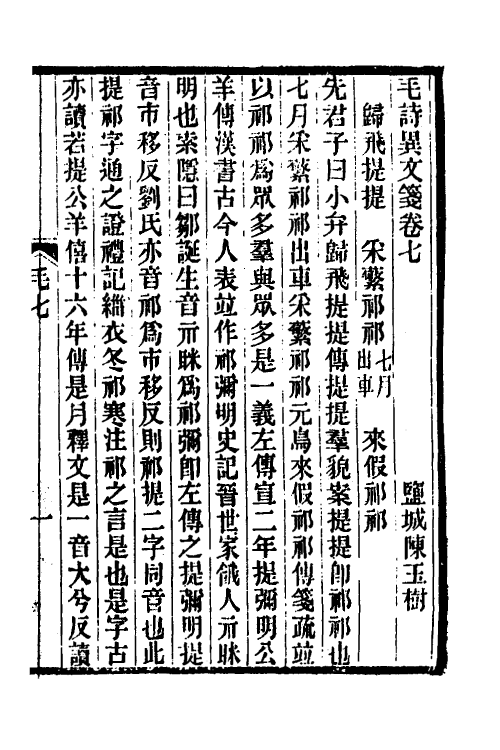 毛詩異文箋卷七
鹽城陳玉樹
歸飛提提　采蘩祁祁七月出車　來假祁祁
先君子曰小弁歸飛提提傳提提羣貌案提提卽祁祁也
七月采蘩祁祁出車采蘩祁祁元鳥來假祁祁傳箋疏竝
以祁祁爲眾多羣與眾多是一義左傳宣二年提彌明公
羊傳漢書古今人表竝作祁彌明史記晉世家餓人示眯
明也索隱曰鄒誕生音示眯爲祁彌卽左傳之提彌明提
音市移反劉氏亦音祁爲市移反則祁提二字同音也此
提祁字通之證禮記緇衣冬祁寒注祁之言是也是字古
亦讀若提公羊僖十六年傳是月釋文是一音大兮反讀
毛七
一